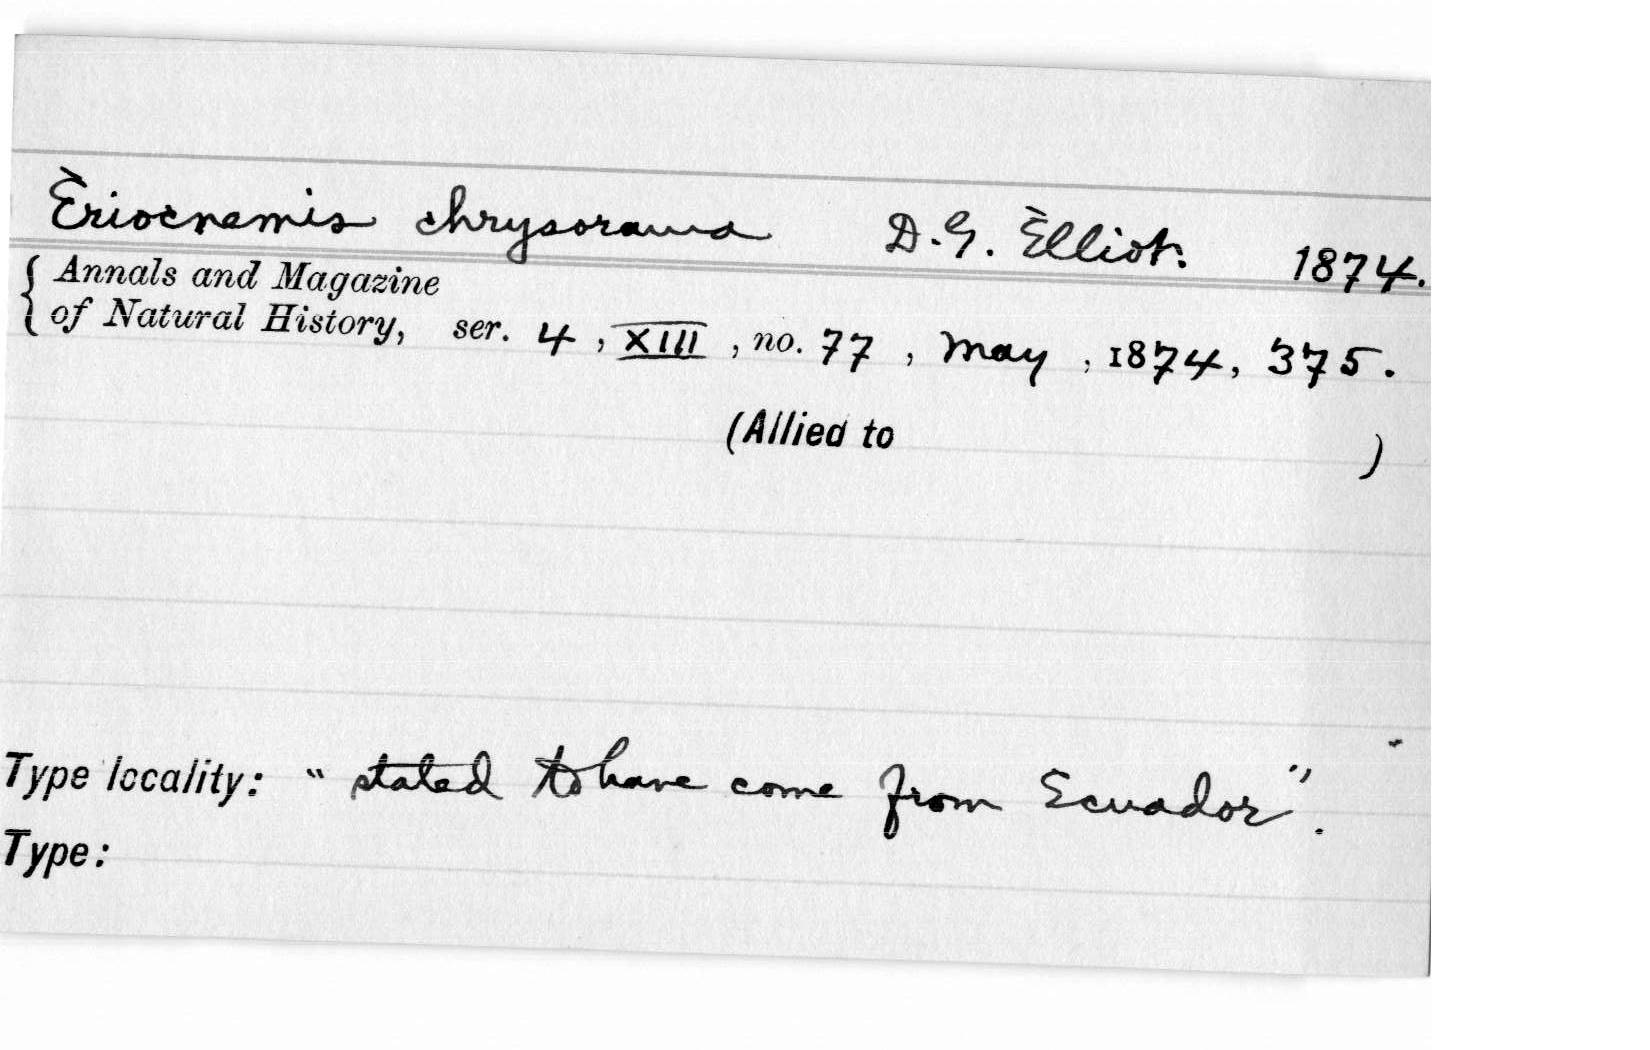 Eriocnemis chrysorama D. G. Elliot. 1874.
{ Annals and Magazine
of Natural History, ser. 4, XIII, no. 77, May, 1874, 375.
(Allied to )
Type locality: "stated to have come from Ecuador".
Type: